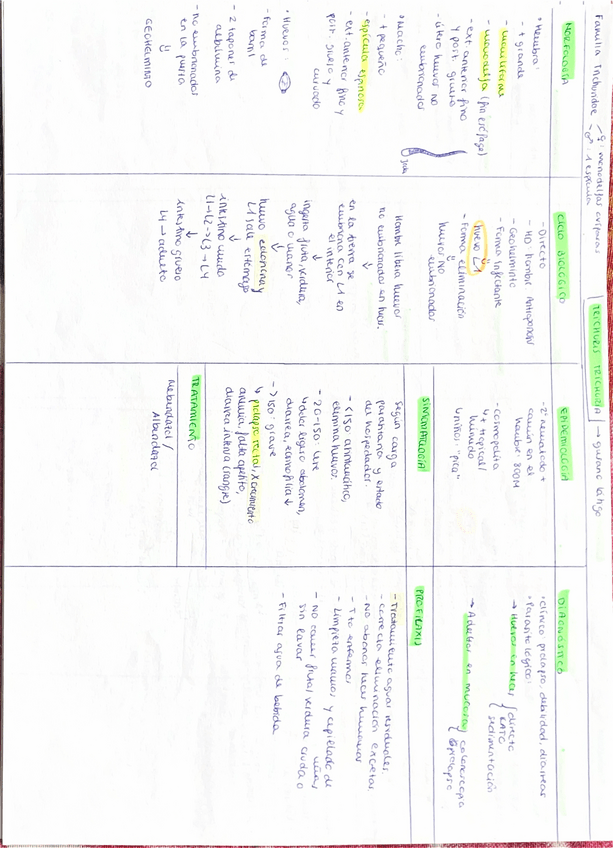 Familia Trichuridae → ♀: monodelfas ovíparas
→ ♂: 1 espícula
TRICHURIS TRICHIURA → gusano látigo
MORFOLOGÍA
• Hembra:
- + grande
- musculares
- (fin esófago)
- ext. anterior fino
y post. grueso
- útero huevos no
embrionados
• Macho:
- + pequeño
- espícula espinosa
- ext. anterior fino y
post. grueso y
curvado
• Huevos:
- Forma de
barril
- 2 tapones de
albúmina
- no embrionados
en la puesta
↓
GEOHELMINTO
CICLO BIOLÓGICO
- Directo
- HD: hombre
- Geohelminto
- Forma infectante
huevo L1
- Forma eliminación
huevos no
embrionados
Hombre libera huevos
no embrionados en heces.
↓
en la tierra se
embriona con L1 en
el interior
↓
ingesta fruta, verdura,
agua o manos
↓
huevo eclosiona y
L1 sale
↓
intestino
L1→L2→L3→L4
↓
intestino grueso
L4 → adulto
EPIDEMIOLOGÍA
- 2º nematodo +
común en el
hombre: 800M
- cosmopolita
↳ + tropical/
húmedo
↳ niños: "pica"
SINTOMATOLOGÍA
Según carga
parasitaria y estado
del hospedador.
elimina huevos.
- 20-150: leve
↳ dolor ligero abdomen,
diarrea, eosinofilia ↓
- >150: grave
↳ prolapso rectal, X crecimiento
anemia, falta apetito,
diarrea intensa (sangre)
TRATAMIENTO
Mebendazol /
Albendazol
DIAGNÓSTICO
• Clínico prolapso, debilidad, diarreas
• Parasitológico:
→ Huevos en heces { directo
KATO
sedimentación
→ Adultos en mucosa { colonoscopia
prolapso
PROFILAXIS
- Tratamiento aguas residuales
- Correcta eliminación excretas
- No abonar heces humanas
- Tto enfermos
- Limpieza manos y cepillado de
uñas
- No comer frutas/verdura cruda o
sin lavar
- Filtrar agua de bebida